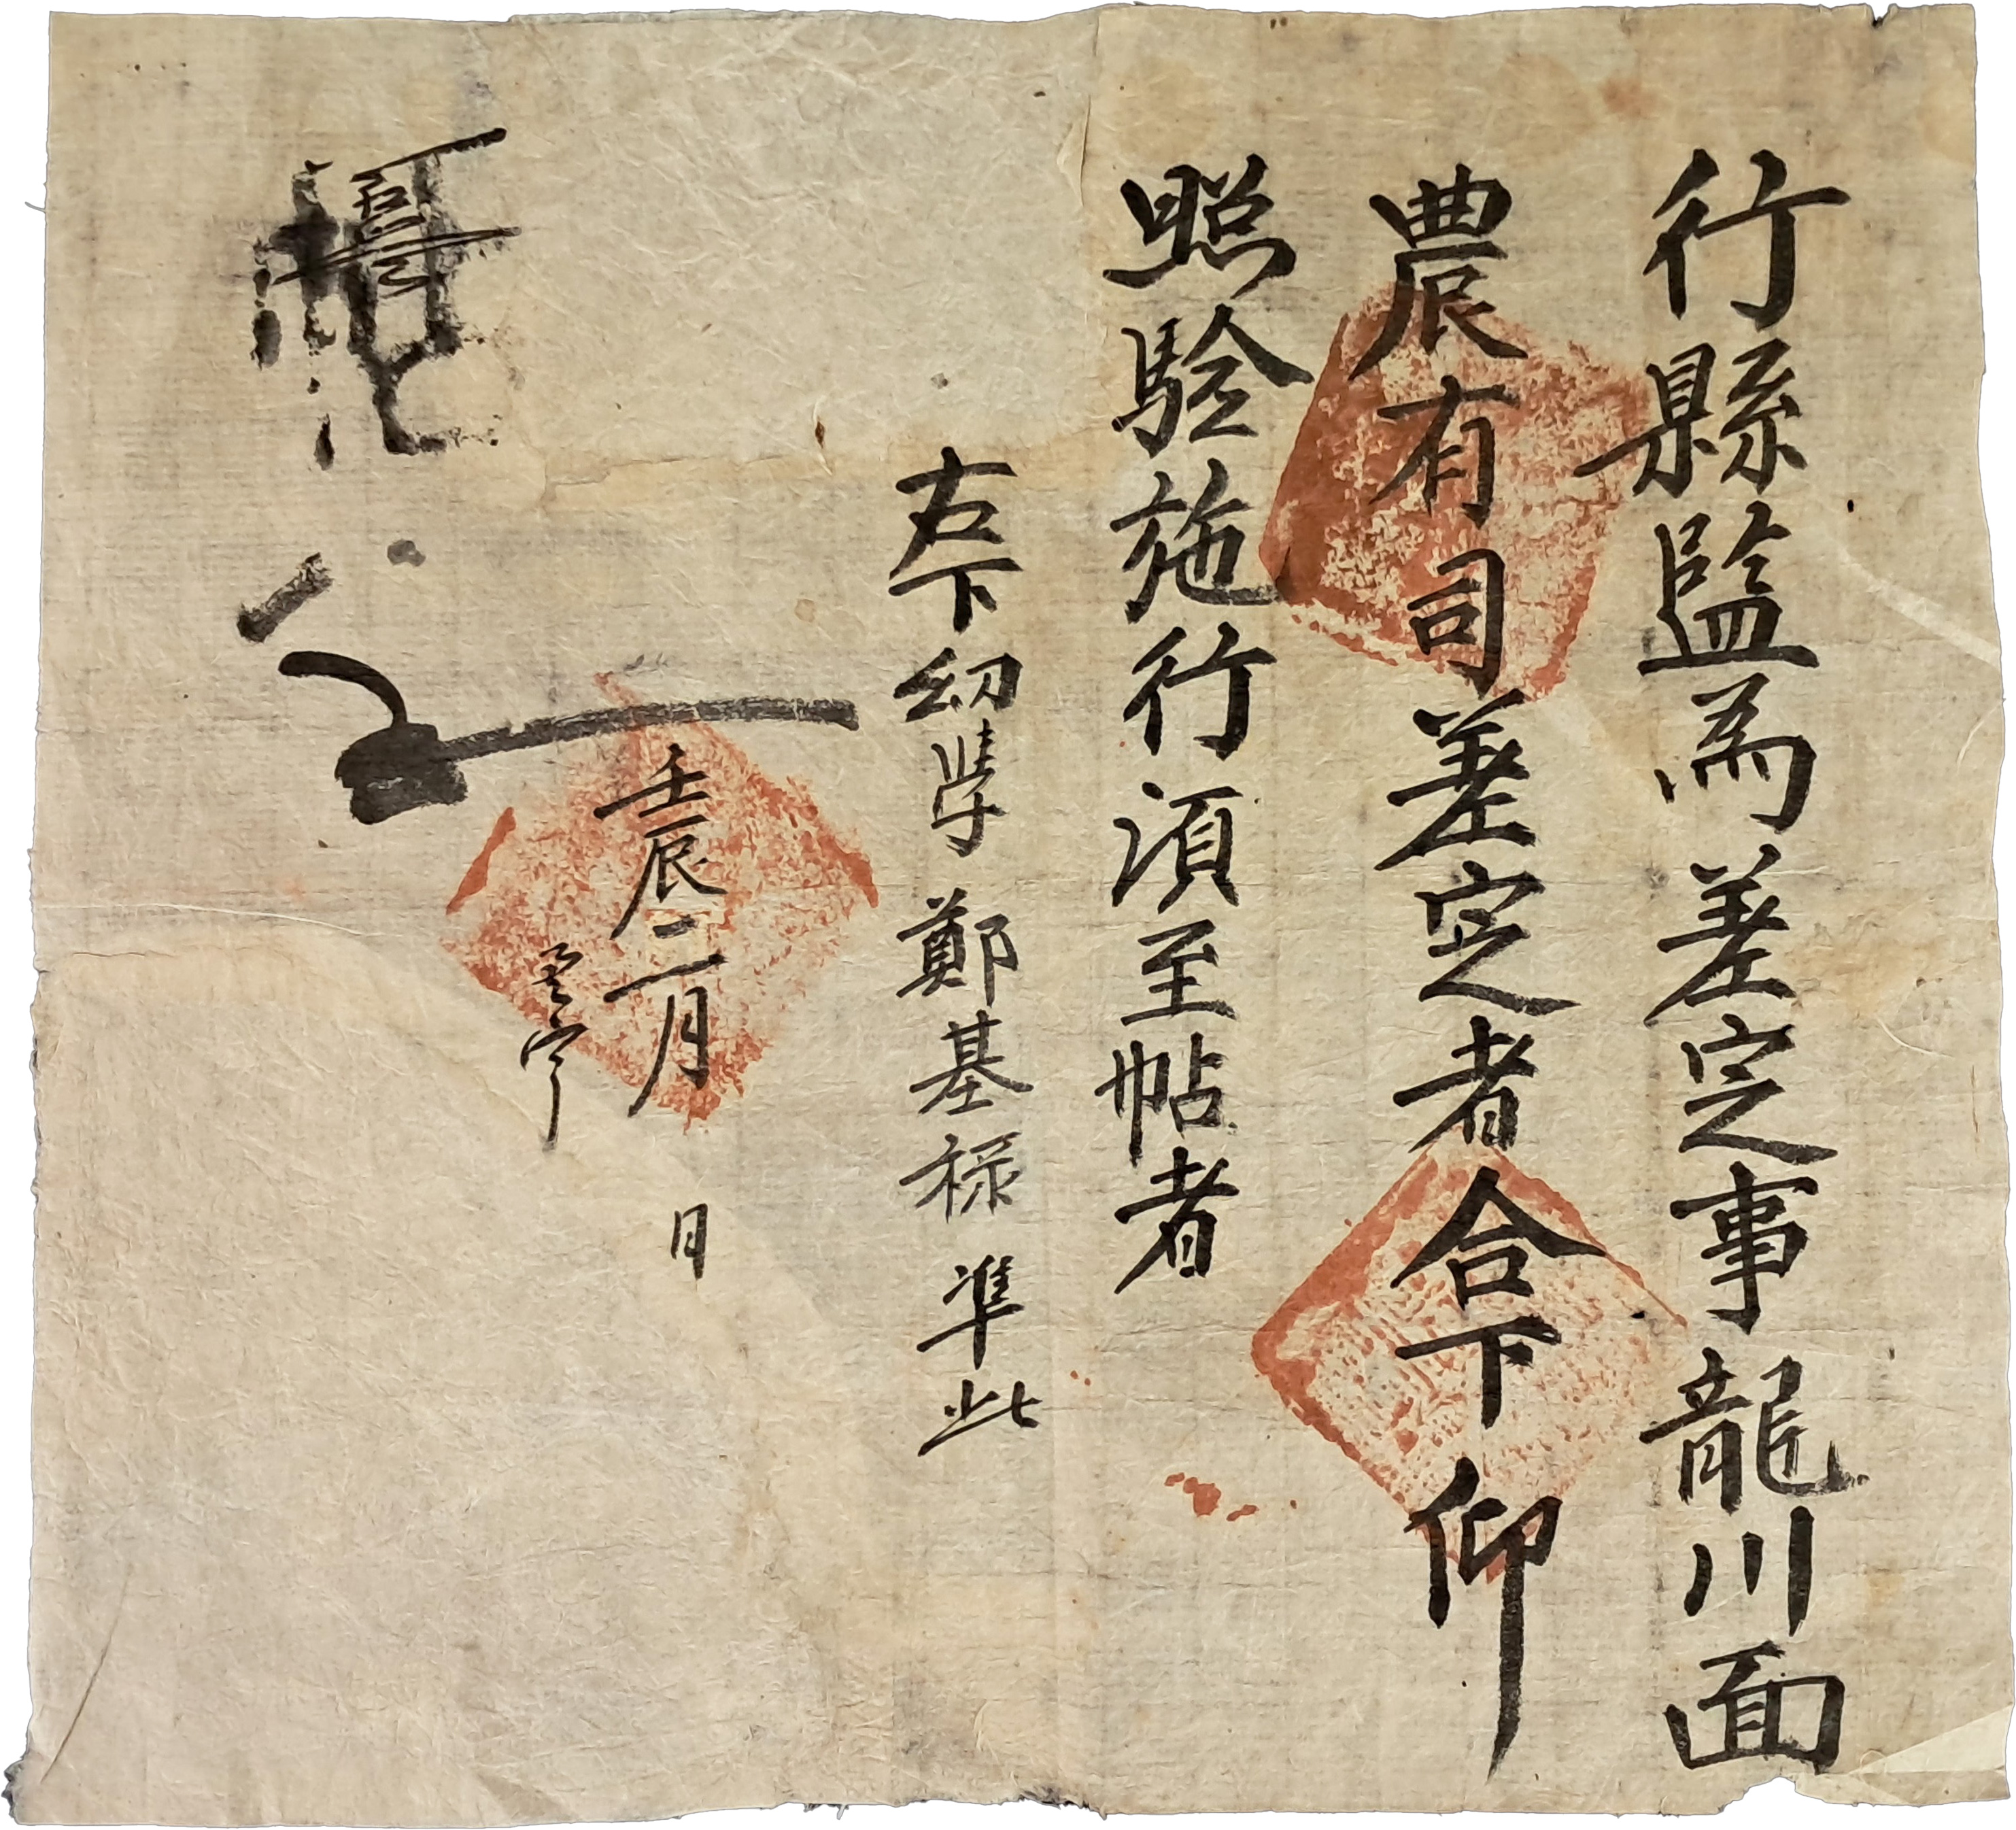 行縣監爲差定事龍川面
農有司差定者合下仰
照驗施行須至帖者
右下幼學鄭基祿 準此
壬辰二月 日